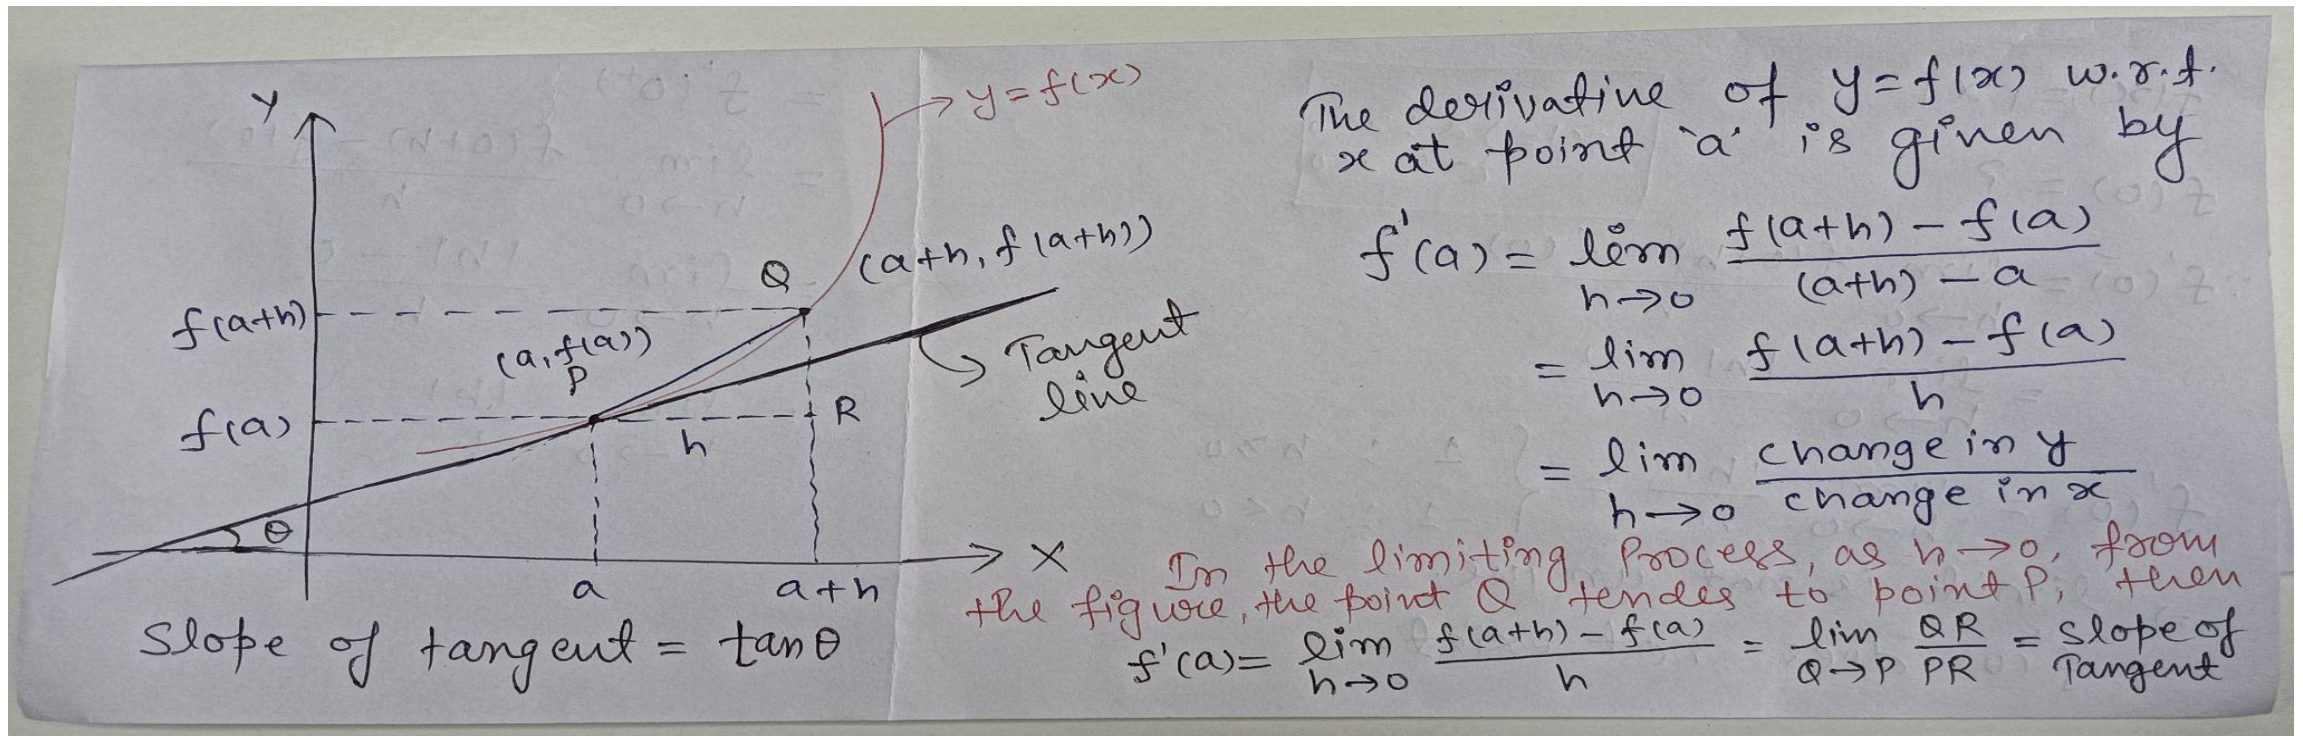 Y
y=f(x)
Q
(a+h, f(a+h))
f(a+h)
(a, f(a))
P
Tangent
line
f(a)
h
R
θ
X
a
a+h
Slope of tangent = tanθ
The derivative of y=f(x) w.r.t.
x at point 'a' is given by
f'(a) = lim h→0 f(a+h) - f(a) / (a+h) - a
= lim h→0 f(a+h) - f(a) / h
= lim h→0 change in y / change in x
In the limiting Process, as h→0, from
the figure, the point Q tendes to point P, then
f'(a) = lim h→0 f(a+h) - f(a) / h = lim Q→P QR / PR = Slope of Tangent